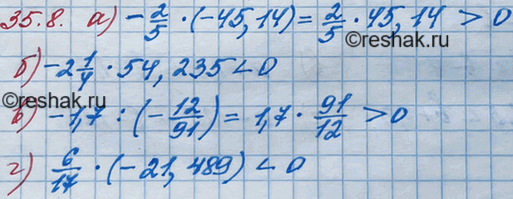 35.8. а) -2/5 · (-45,14) = 2/5 · 45,14 > 0
©reshak.ru
б) -2 1/4 · 54,235 < 0
©reshak.ru
в) -1,7 : (-12/91) = 1,7 · 91/12 > 0
г) 6/17 · (-21,489) < 0